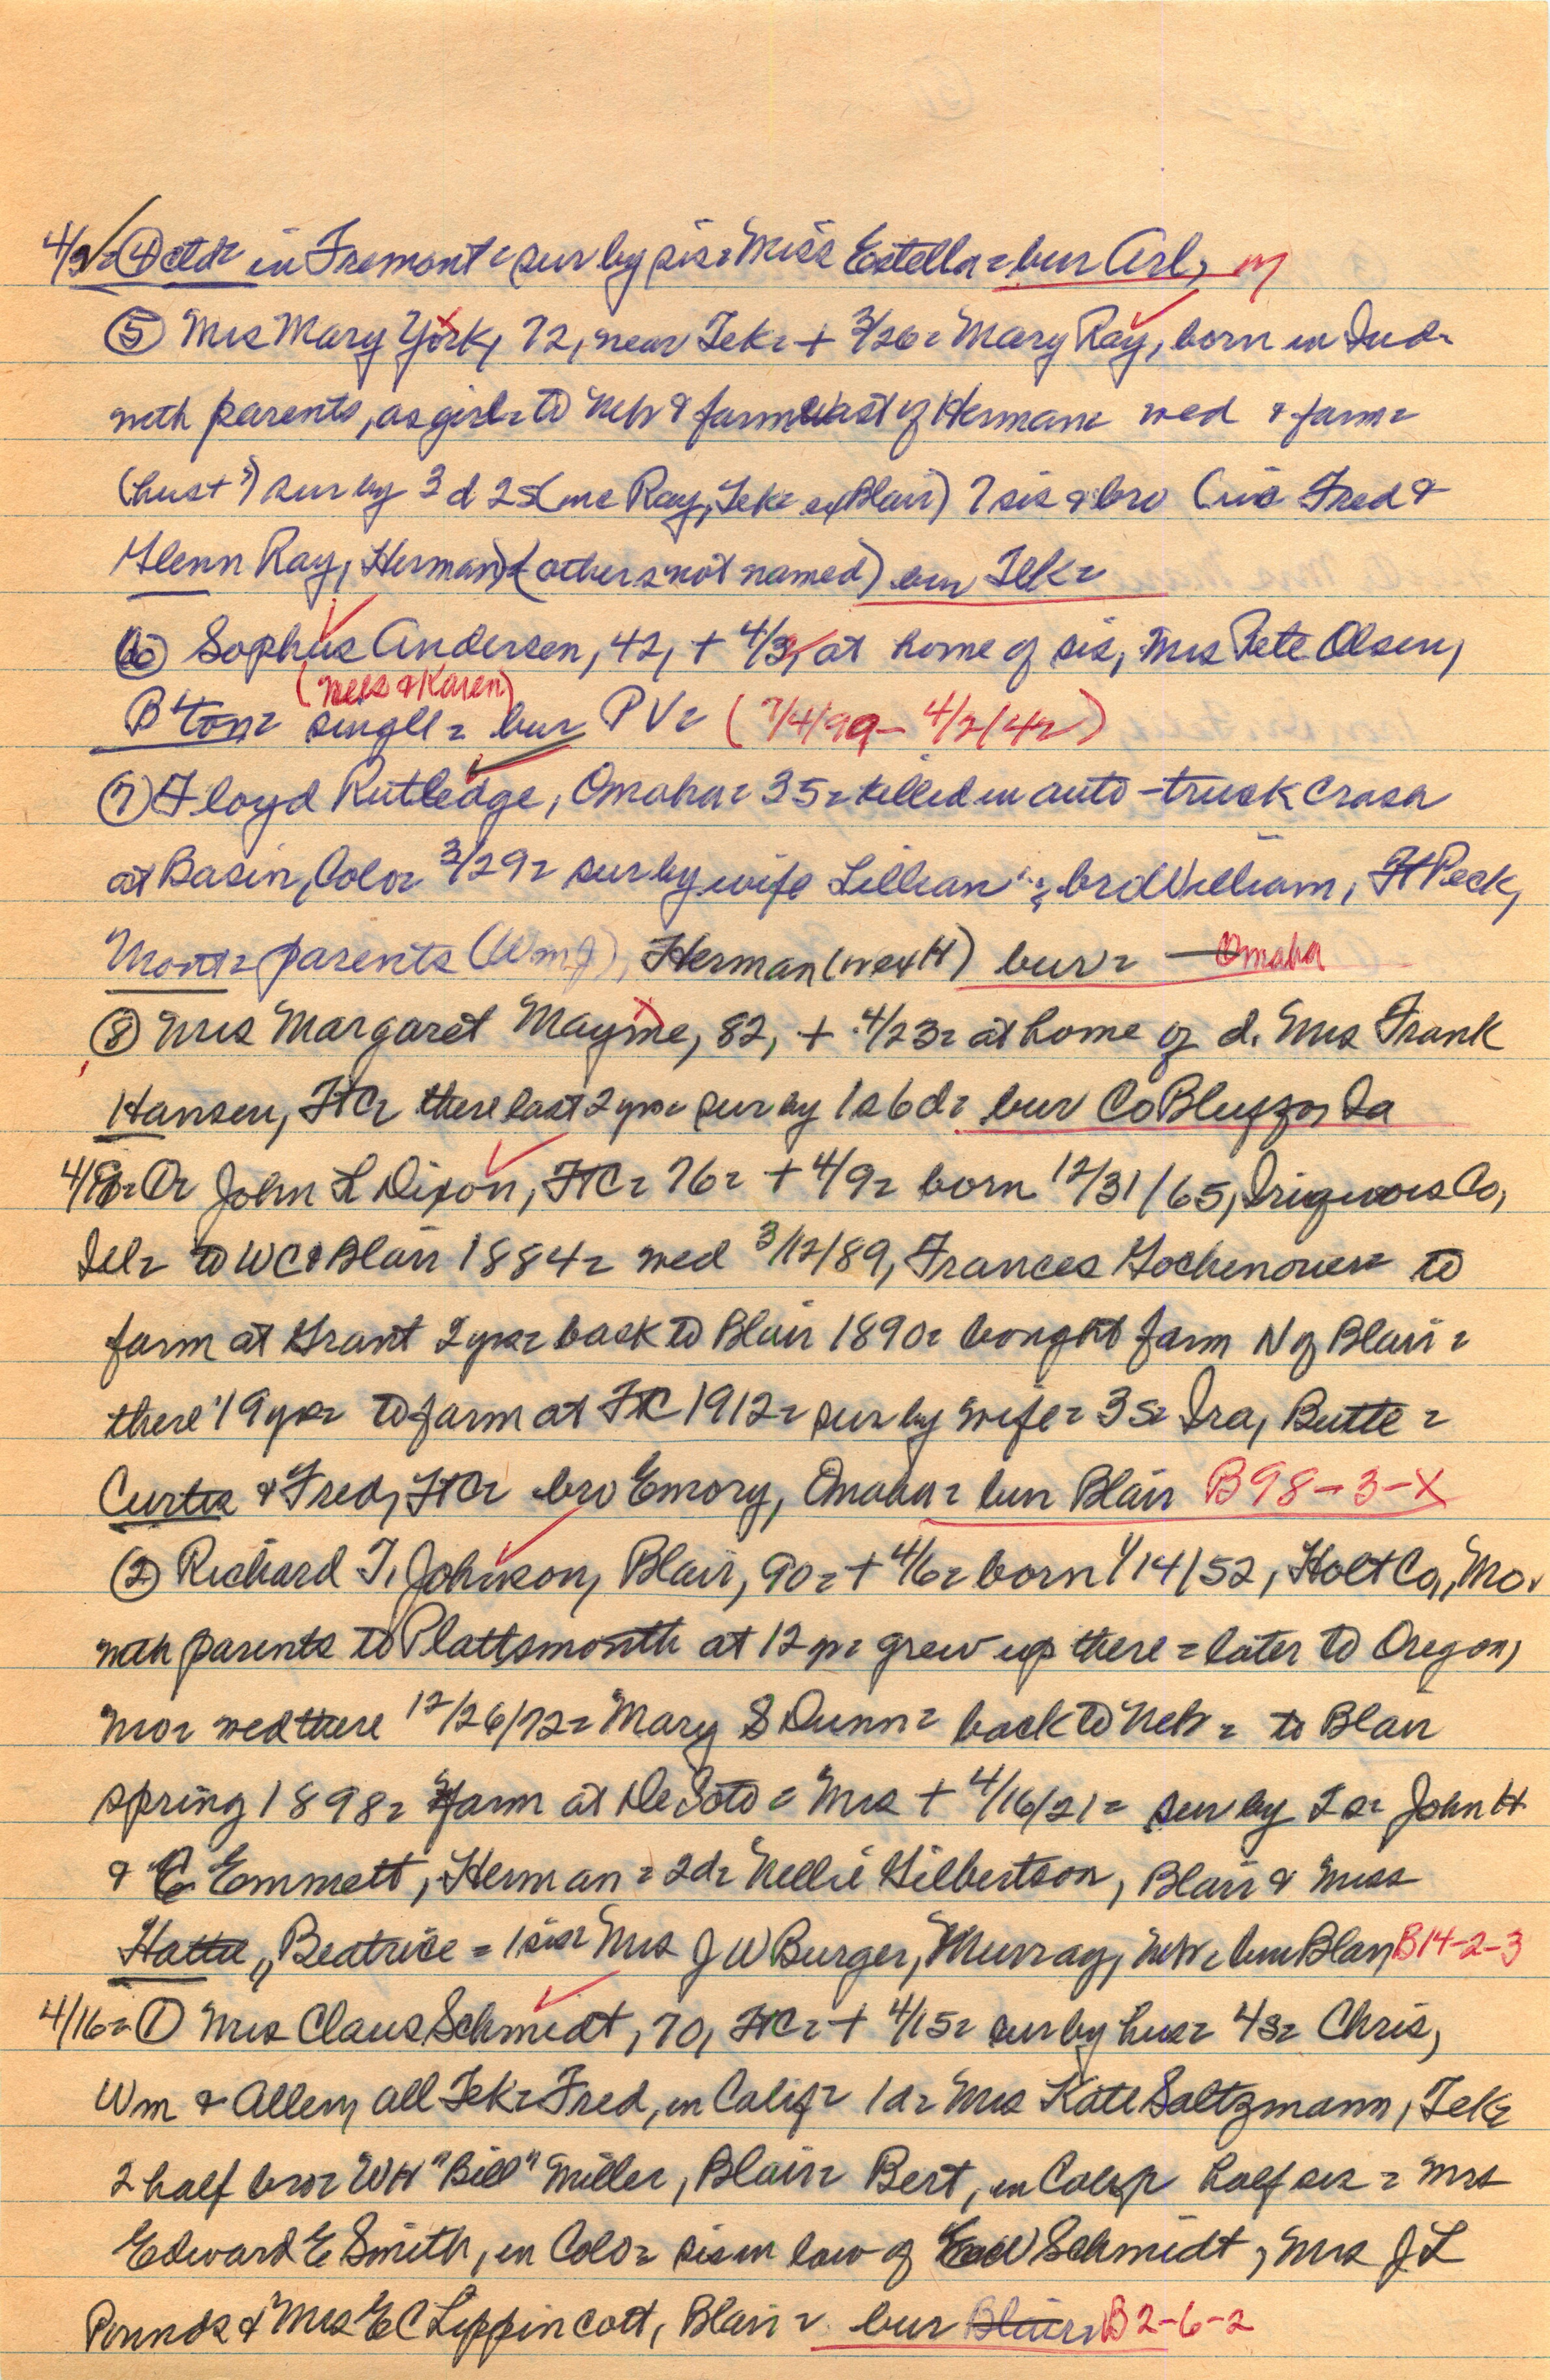 4/9= ④ ctd= in Fremont= sur by sis= Miss Estella= bur Arl,
⑤ Mrs Mary York, 72, near Tek= + 3/26= Mary Ray, born in Ind=
with parents, as girl= to Neb & farm east of Herman= wed & farm=
(hus + ?) sur by 3 d 2s (inc Ray, Tek= ex Blair) 7 sis & bro (inc Fred &
Glenn Ray, Herman) (others not named) bur Tek=
⑥ Sophus Andersen, 42, + 4/3, at home of sis, Mrs Pete Olsen,
(Nels & Karen)
B'ton= single= bur PV= (7/4/99- 4/2/42)
⑦ Floyd Rutledge, Omaha= 35= killed in auto-truck crash
at Basin, Colo= 3/29= sur by wife Lillian= bro William, Ft Peck,
Mont= parents (Wm J), Herman (nw of H) bur= — Omaha
⑧ Mrs Margaret Mayme, 82, + 4/23= at home of d. Mrs Frank
Hansen, FtC= there last 2 yrs= sur by 1s 6d= bur Co Bluffs, Ia
John L Dixon, FtC= 76= + 4/9= born 12/31/65, Co,
Ill= to WC & Blair 1884= wed 3/12/89, Frances Gochenour= to
farm at Grant 2 yrs= back to Blair 1890= bought farm N of Blair=
there 19 yrs= to farm at FtC 1912= sur by wife= 3s= Ira, Butte=
Curtis & Fred, FtC= bro Emory, Omaha= bur Blair B98-3-X
② Richard T, Johnson, Blair, 90= + 4/6= born 1/14/52, Holt Co, Mo.
with parents to Plattsmouth at 12 yr= grew up there= later to Oregon,
Mo= wed there 12/26/72= Mary S Dunn= back to Neb= to Blair
spring 1898= farm at De Soto= Mrs + 4/16/21= sur by 2s= John H
& C Emmett, Herman= 2d= Nellie Gilbertson, Blair & Miss
Hattie, Beatrice= 1 sis= Mrs J W Burger, Murray, Neb= bur Blair B14-2-3
4/16= ① Mrs Claus Schmidt, 70, FtC= + 4/15= sur by hus= 4s= Chris,
Wm & Allen, all Tek= Fred, in Calif= 1d= Mrs Kate Saltzmann, Tek=
2 half bro= WH "Bill" Miller, Blair= Bert, in Calif= half sis= Mrs
Edward E Smith, in Colo= sis in law of Schmidt, Mrs J L
Pounds & Mrs E C Lippincott, Blair= bur Blair= B2-6-2